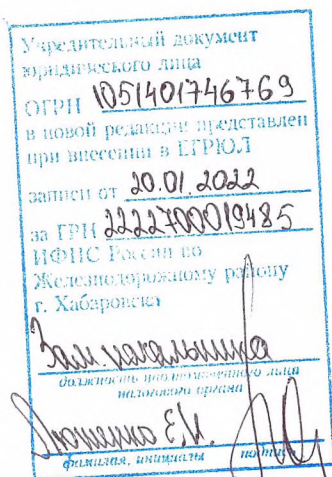 Учредительный документ
юридического лица
ОГРН 1051401746769
в новой редакции представлен
при внесении в ЕГРЮЛ
записи от 20.01.2022
за ГРН 2222700019485
ИФНС России по
Железнодорожному району
г. Хабаровска
Зам. начальника
должность уполномоченного лица
налогового органа
Э.И.
фамилия, инициалы подпись